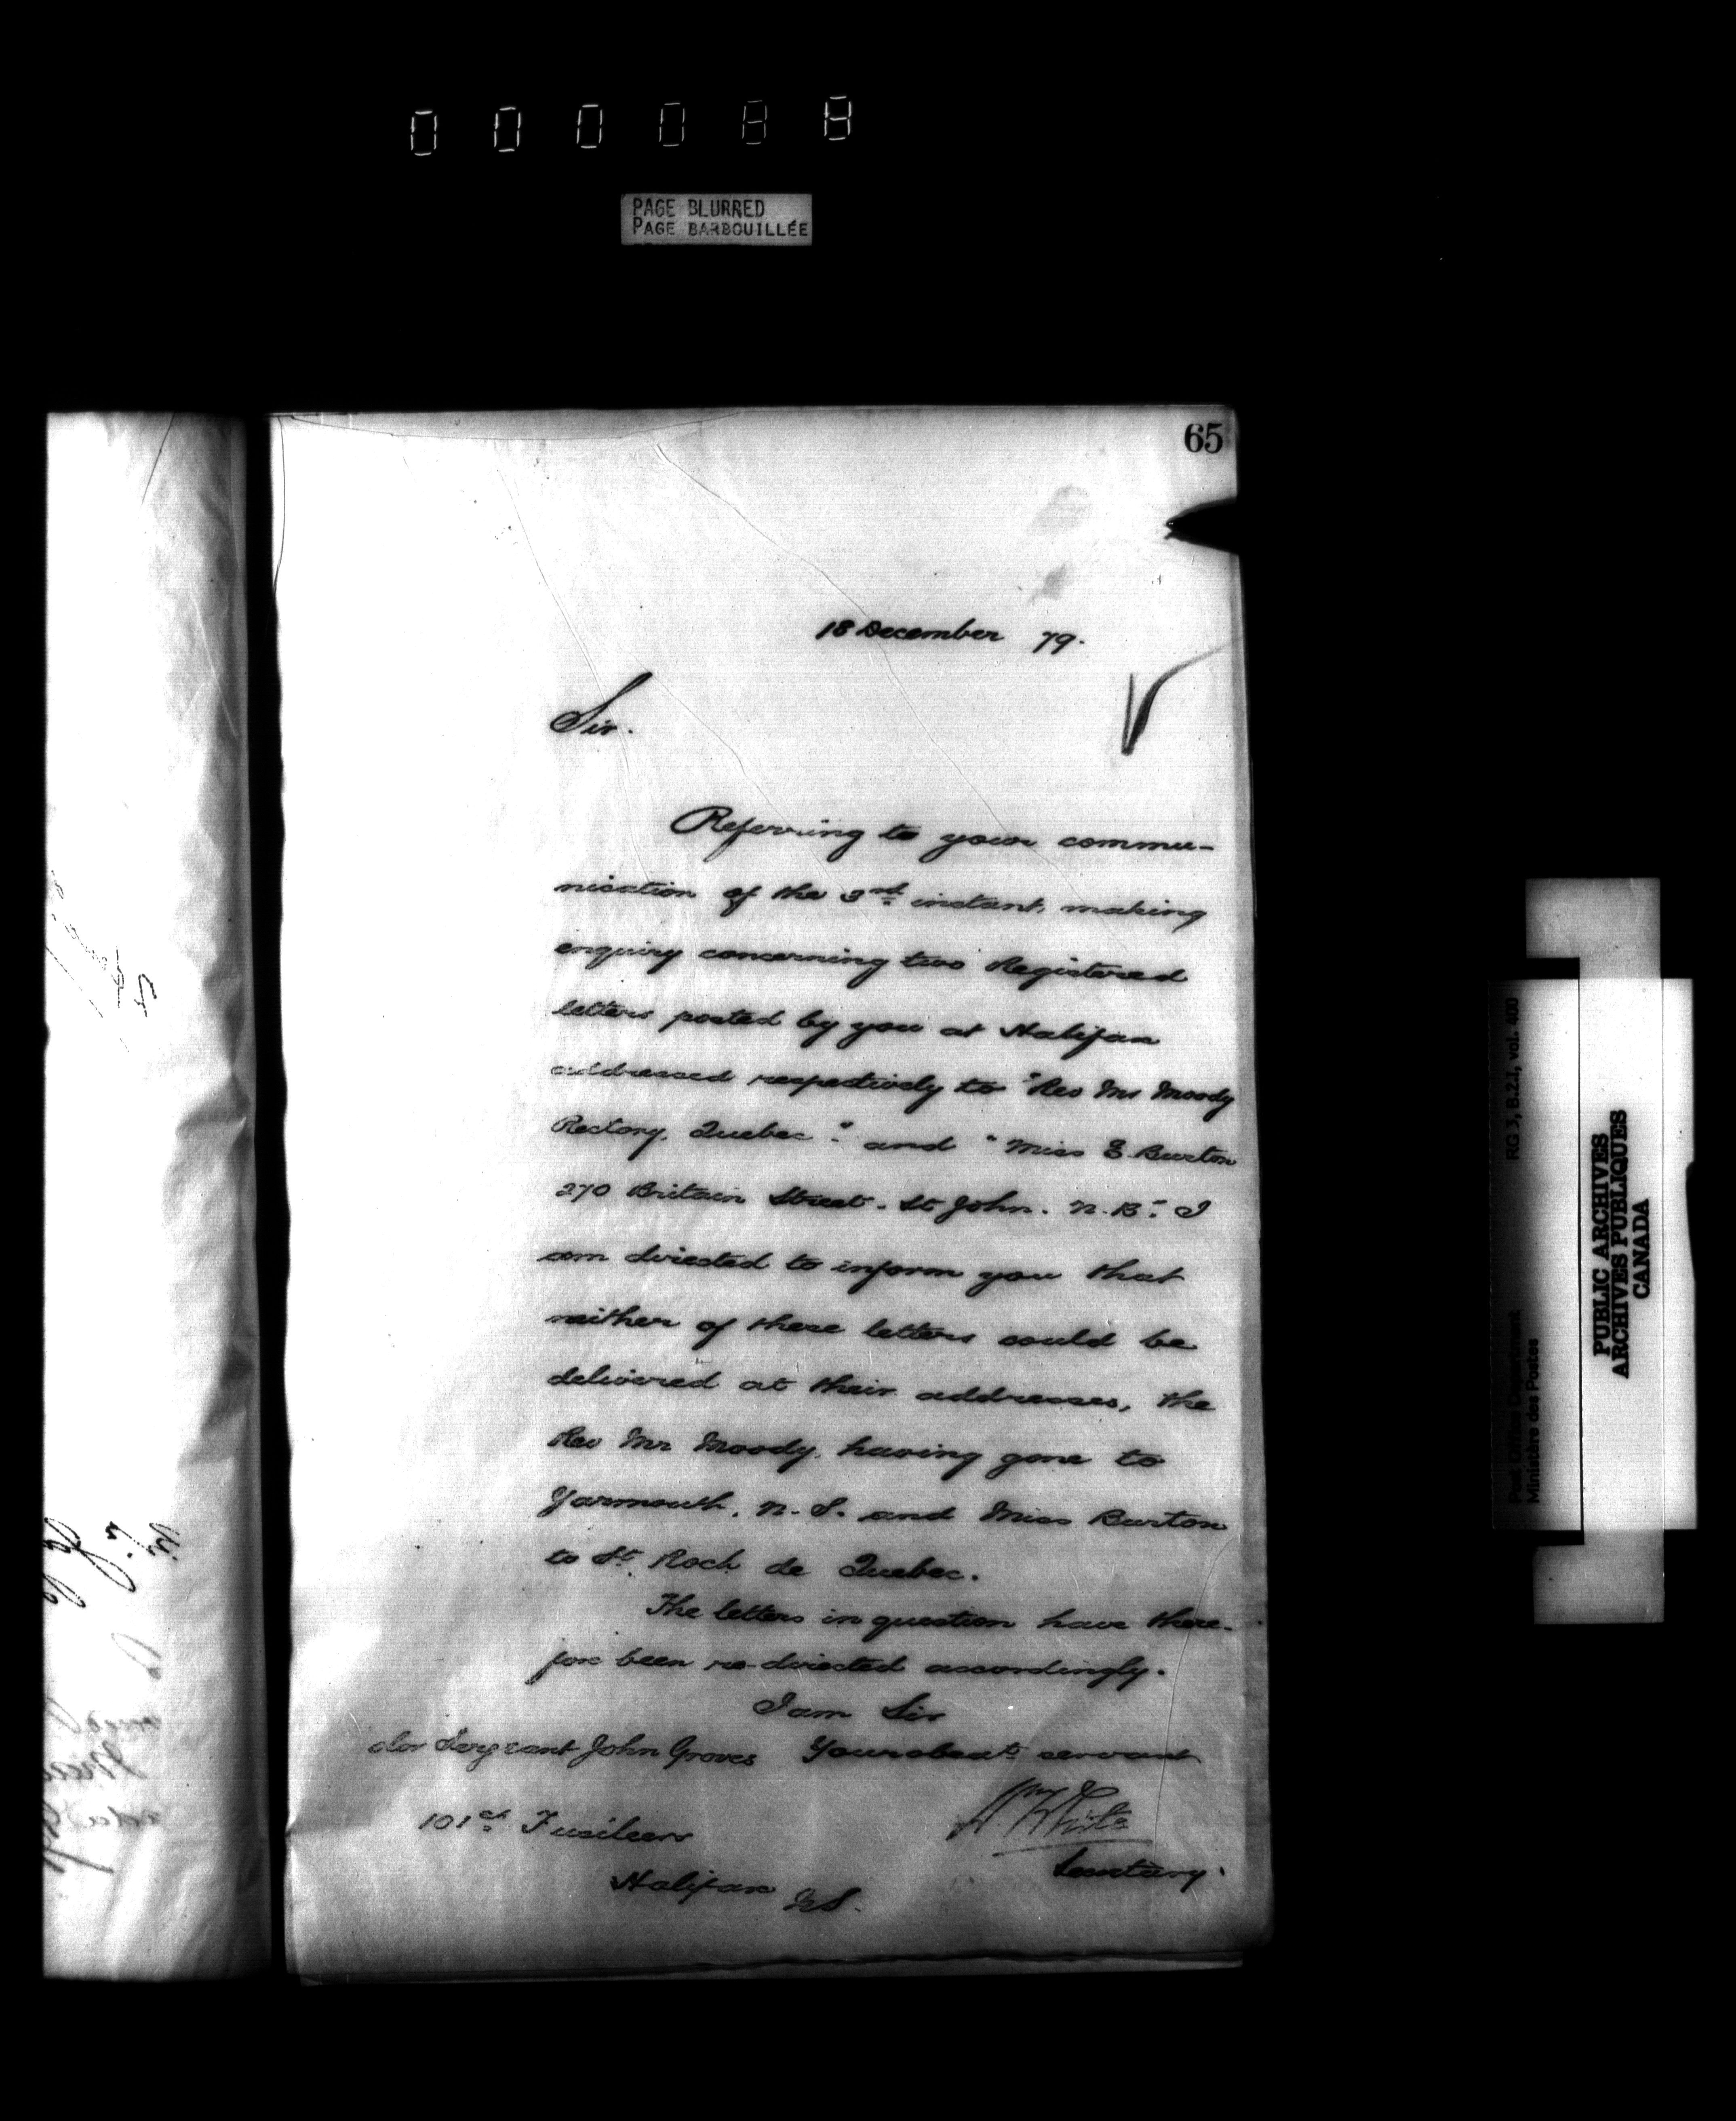 000088
PAGE BLURRED
PAGE BARBOUILLÉE
65
18 December 79.
Sir.
Referring to your commu-
nication of the 3rd instant, making
enquiry concerning two Registered
letters posted by you at Halifax
addressed respectively to "Rev Mr Moody
Rectory, Quebec." and "Miss E. Burton
270 Britain Street. St John. N.B." I
am directed to inform you that
neither of these letters could be
delivered at their addresses, the
Rev Mr Moody, having gone to
Yarmouth, N.S. and Miss Burton
to St. Roch de Quebec.
The letters in question have there-
fore been re-directed accordingly.
I am Sir
Your obedt. servant
Wm White
Secretary.
Clor Sergeant John Groves
101st Fusileers
Halifax N.S.
RG 3, B.2.1, vol. 400
Post Office Department
Ministère des Postes
PUBLIC ARCHIVES
ARCHIVES PUBLIQUES
CANADA